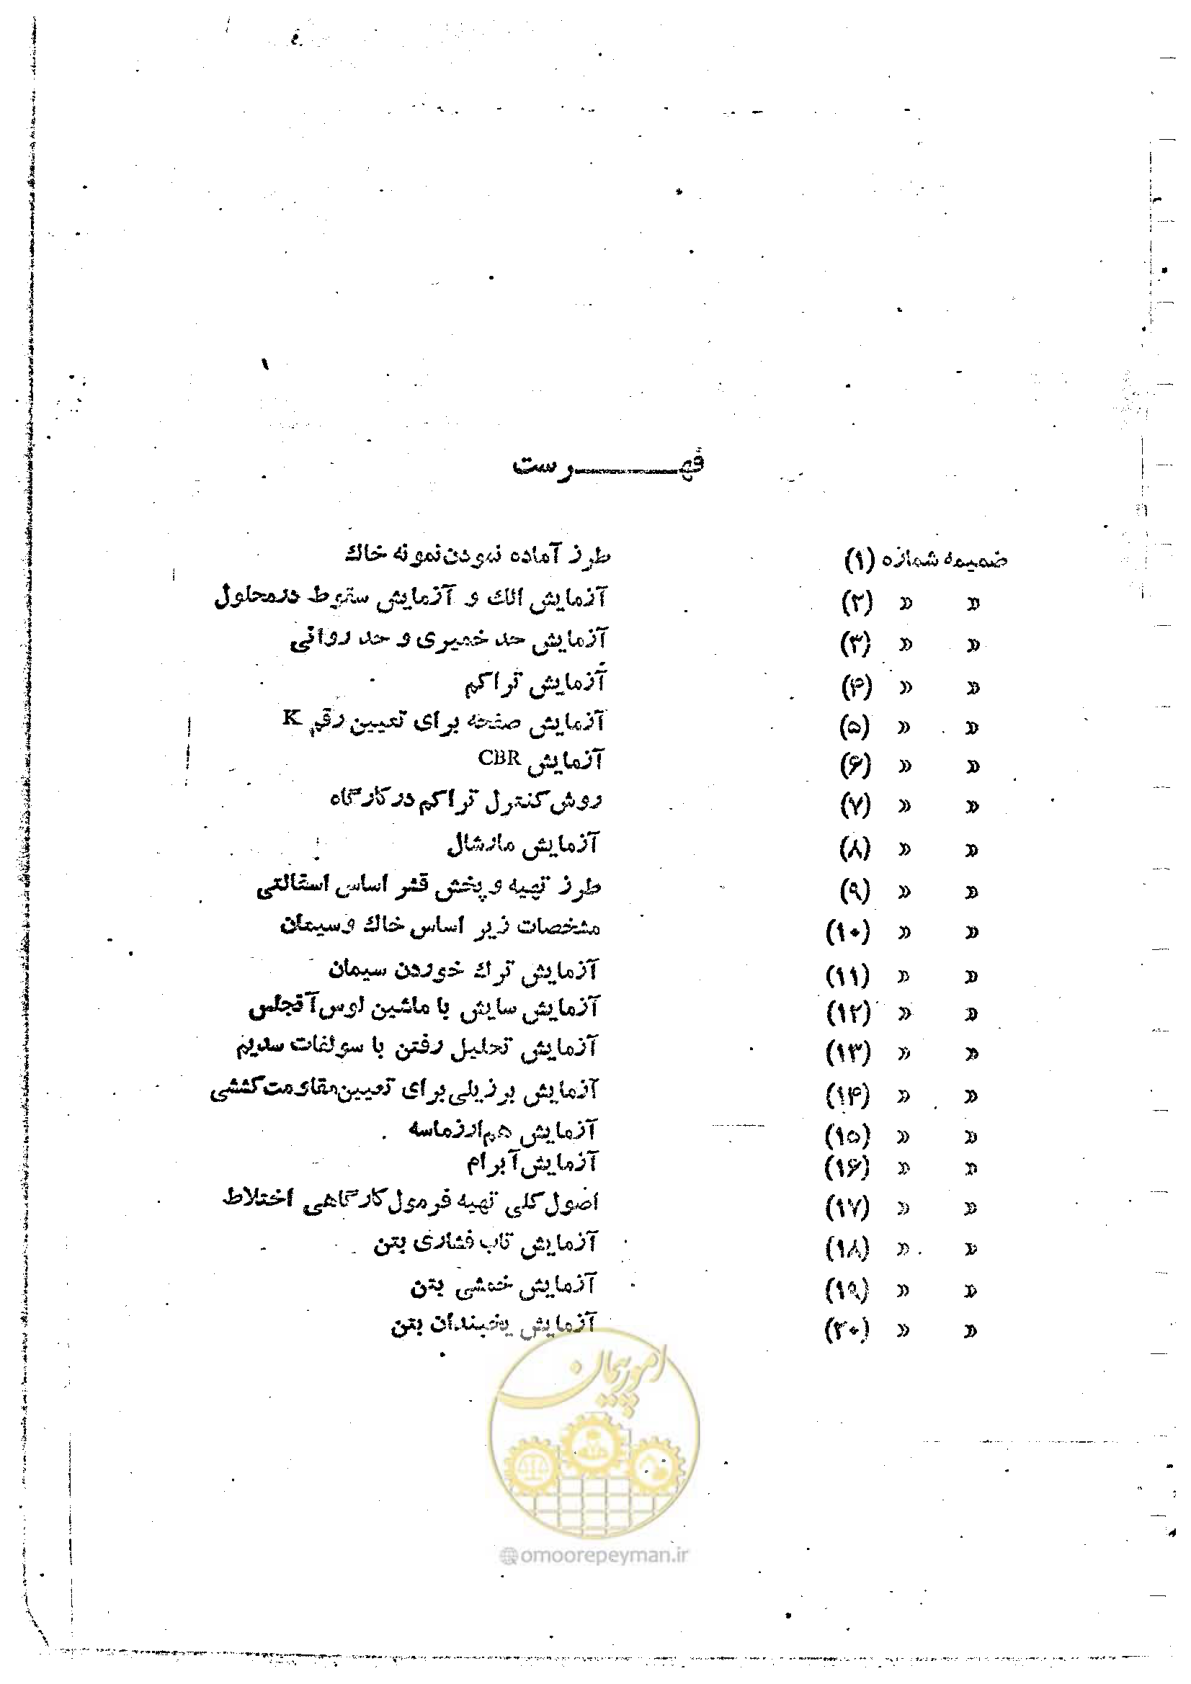 فهرست
ضمیمه شماره (۱) طرز آماده نمودن نمونه خاك
» » (۲) آزمایش الك و آزمایش سقوط در محلول
» » (۳) آزمایش حد خمیری و حد روانی
» » (۴) آزمایش تراکم
» » (۵) آزمایش صفحه برای تعیین رقم K
» » (۶) آزمایش CBR
» » (۷) روش کنترل تراکم در کارگاه
» » (۸) آزمایش مارشال
» » (۹) طرز تهیه و پخش قشر اساس اسفالتی
» » (۱۰) مشخصات زیر اساس خاك و سیمان
» » (۱۱) آزمایش ترك خوردن سیمان
» » (۱۲) آزمایش سایش با ماشین لوس آنجلس
» » (۱۳) آزمایش تحلیل رفتن با سولفات سدیم
» » (۱۴) آزمایش برزیلی برای تعیین مقاومت کششی
» » (۱۵) آزمایش هم ارز ماسه
» » (۱۶) آزمایش آبرام
» » (۱۷) اصول کلی تهیه فرمول کارگاهی اختلاط
» » (۱۸) آزمایش تاب فشاری بتن
» » (۱۹) آزمایش خمشی بتن
» » (۲۰) آزمایش یخبندان بتن
امور پیمان
@omoorepeyman.ir